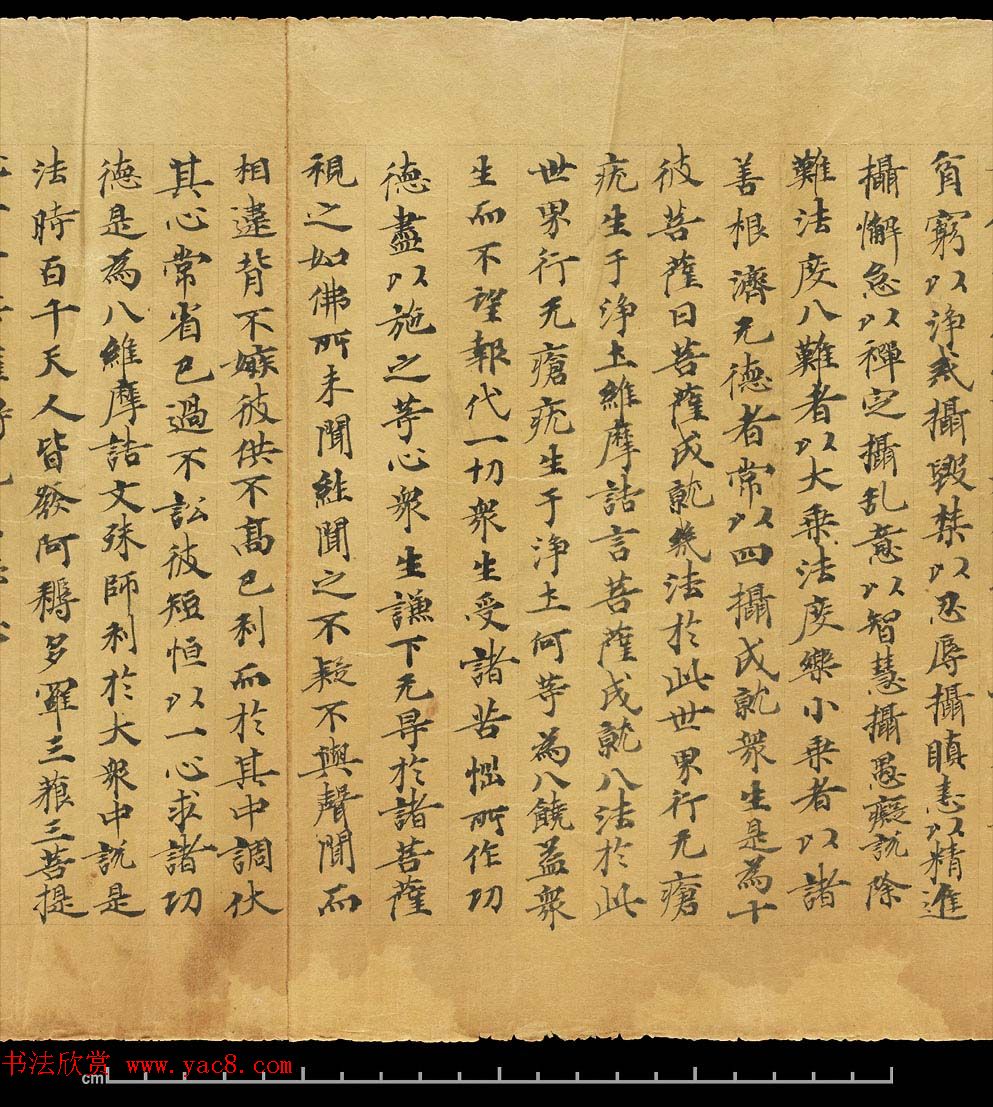 貧窮以淨戒攝毀禁以忍辱攝瞋恚以精進
攝懈怠以禪定攝乱意以智慧攝愚癡說除
難法度八難者以大乘法度樂小乘者以諸
善根濟无德者常以四攝成就衆生是為十
彼菩薩曰菩薩成就幾法於此世界行无瘡
疣生于淨土維摩詰言菩薩成就八法於此
世界行无瘡疣生于淨土何等為八饒益衆
生而不望報代一切衆生受諸苦惱所作功
德盡以施之等心衆生謙下无㝵於諸菩薩
視之如佛所未聞經聞之不疑不與聲聞而
相違背不嫉彼供不高己利而於其中調伏
其心常省己過不訟彼短恒以一心求諸功
德是為八維摩詰文殊師利於大衆中說是
法時百千天人皆發阿耨多羅三藐三菩提
书法欣赏 www.yac8.com
cm